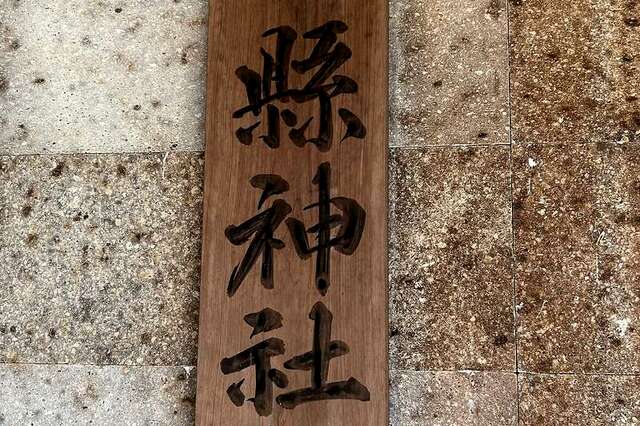 縣神社